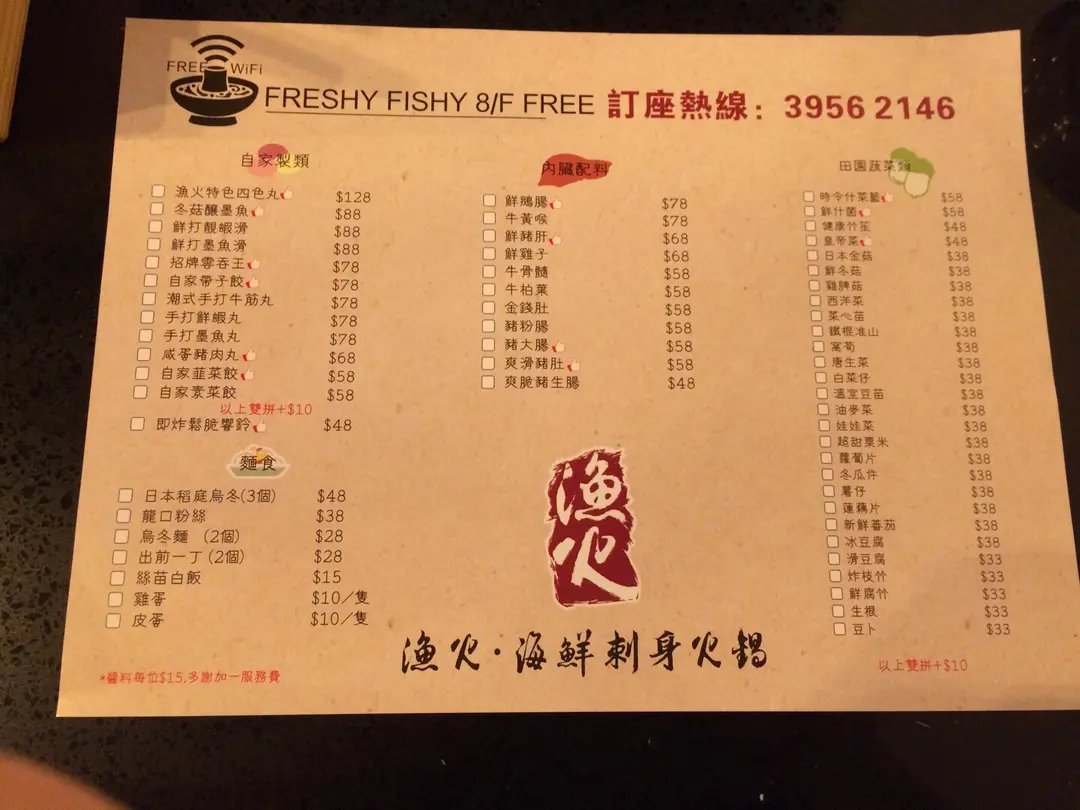 FREE WiFi
FRESHY FISHY 8/F FREE 訂座熱線: 3956 2146
自家製類
漁火特色四色丸 $128
冬菇釀墨魚 $88
鮮打靚蝦滑 $88
鮮打墨魚滑 $88
招牌雲吞王 $78
自家帶子餃 $78
潮式手打牛筋丸 $78
手打鮮蝦丸 $78
手打墨魚丸 $78
咸蛋豬肉丸 $68
自家韮菜餃 $58
自家素菜餃 $58
以上雙拼+$10
即炸鬆脆響鈴 $48
麵食
日本稻庭烏冬(3個) $48
龍口粉絲 $38
烏冬麵 (2個) $28
出前一丁(2個) $28
絲苗白飯 $15
雞蛋 $10/隻
皮蛋 $10/隻
*醬料每位$15,多謝加一服務費
內臟配料
鮮鵝腸 $78
牛黃喉 $78
鮮豬肝 $68
鮮雞子 $68
牛骨髓 $58
牛柏葉 $58
金錢肚 $58
豬粉腸 $58
豬大腸 $58
爽滑豬肚 $58
爽脆豬生腸 $48
漁火
漁火·海鮮刺身火鍋
田園蔬菜類
時令什菜籃 $58
鮮什菌 $58
健康竹笙 $48
皇帝菜 $48
日本金菇 $38
鮮冬菇 $38
雞脾菇 $38
西洋菜 $38
菜心苗 $38
鐵棍准山 $38
窩筍 $38
唐生菜 $38
白菜仔 $38
溫室豆苗 $38
油麥菜 $38
娃娃菜 $38
超甜粟米 $38
蘿蔔片 $38
冬瓜件 $38
薯仔 $38
蓮藕片 $38
新鮮番茄 $38
冰豆腐 $38
滑豆腐 $33
炸枝竹 $33
鮮腐竹 $33
生根 $33
豆卜 $33
以上雙拼+$10